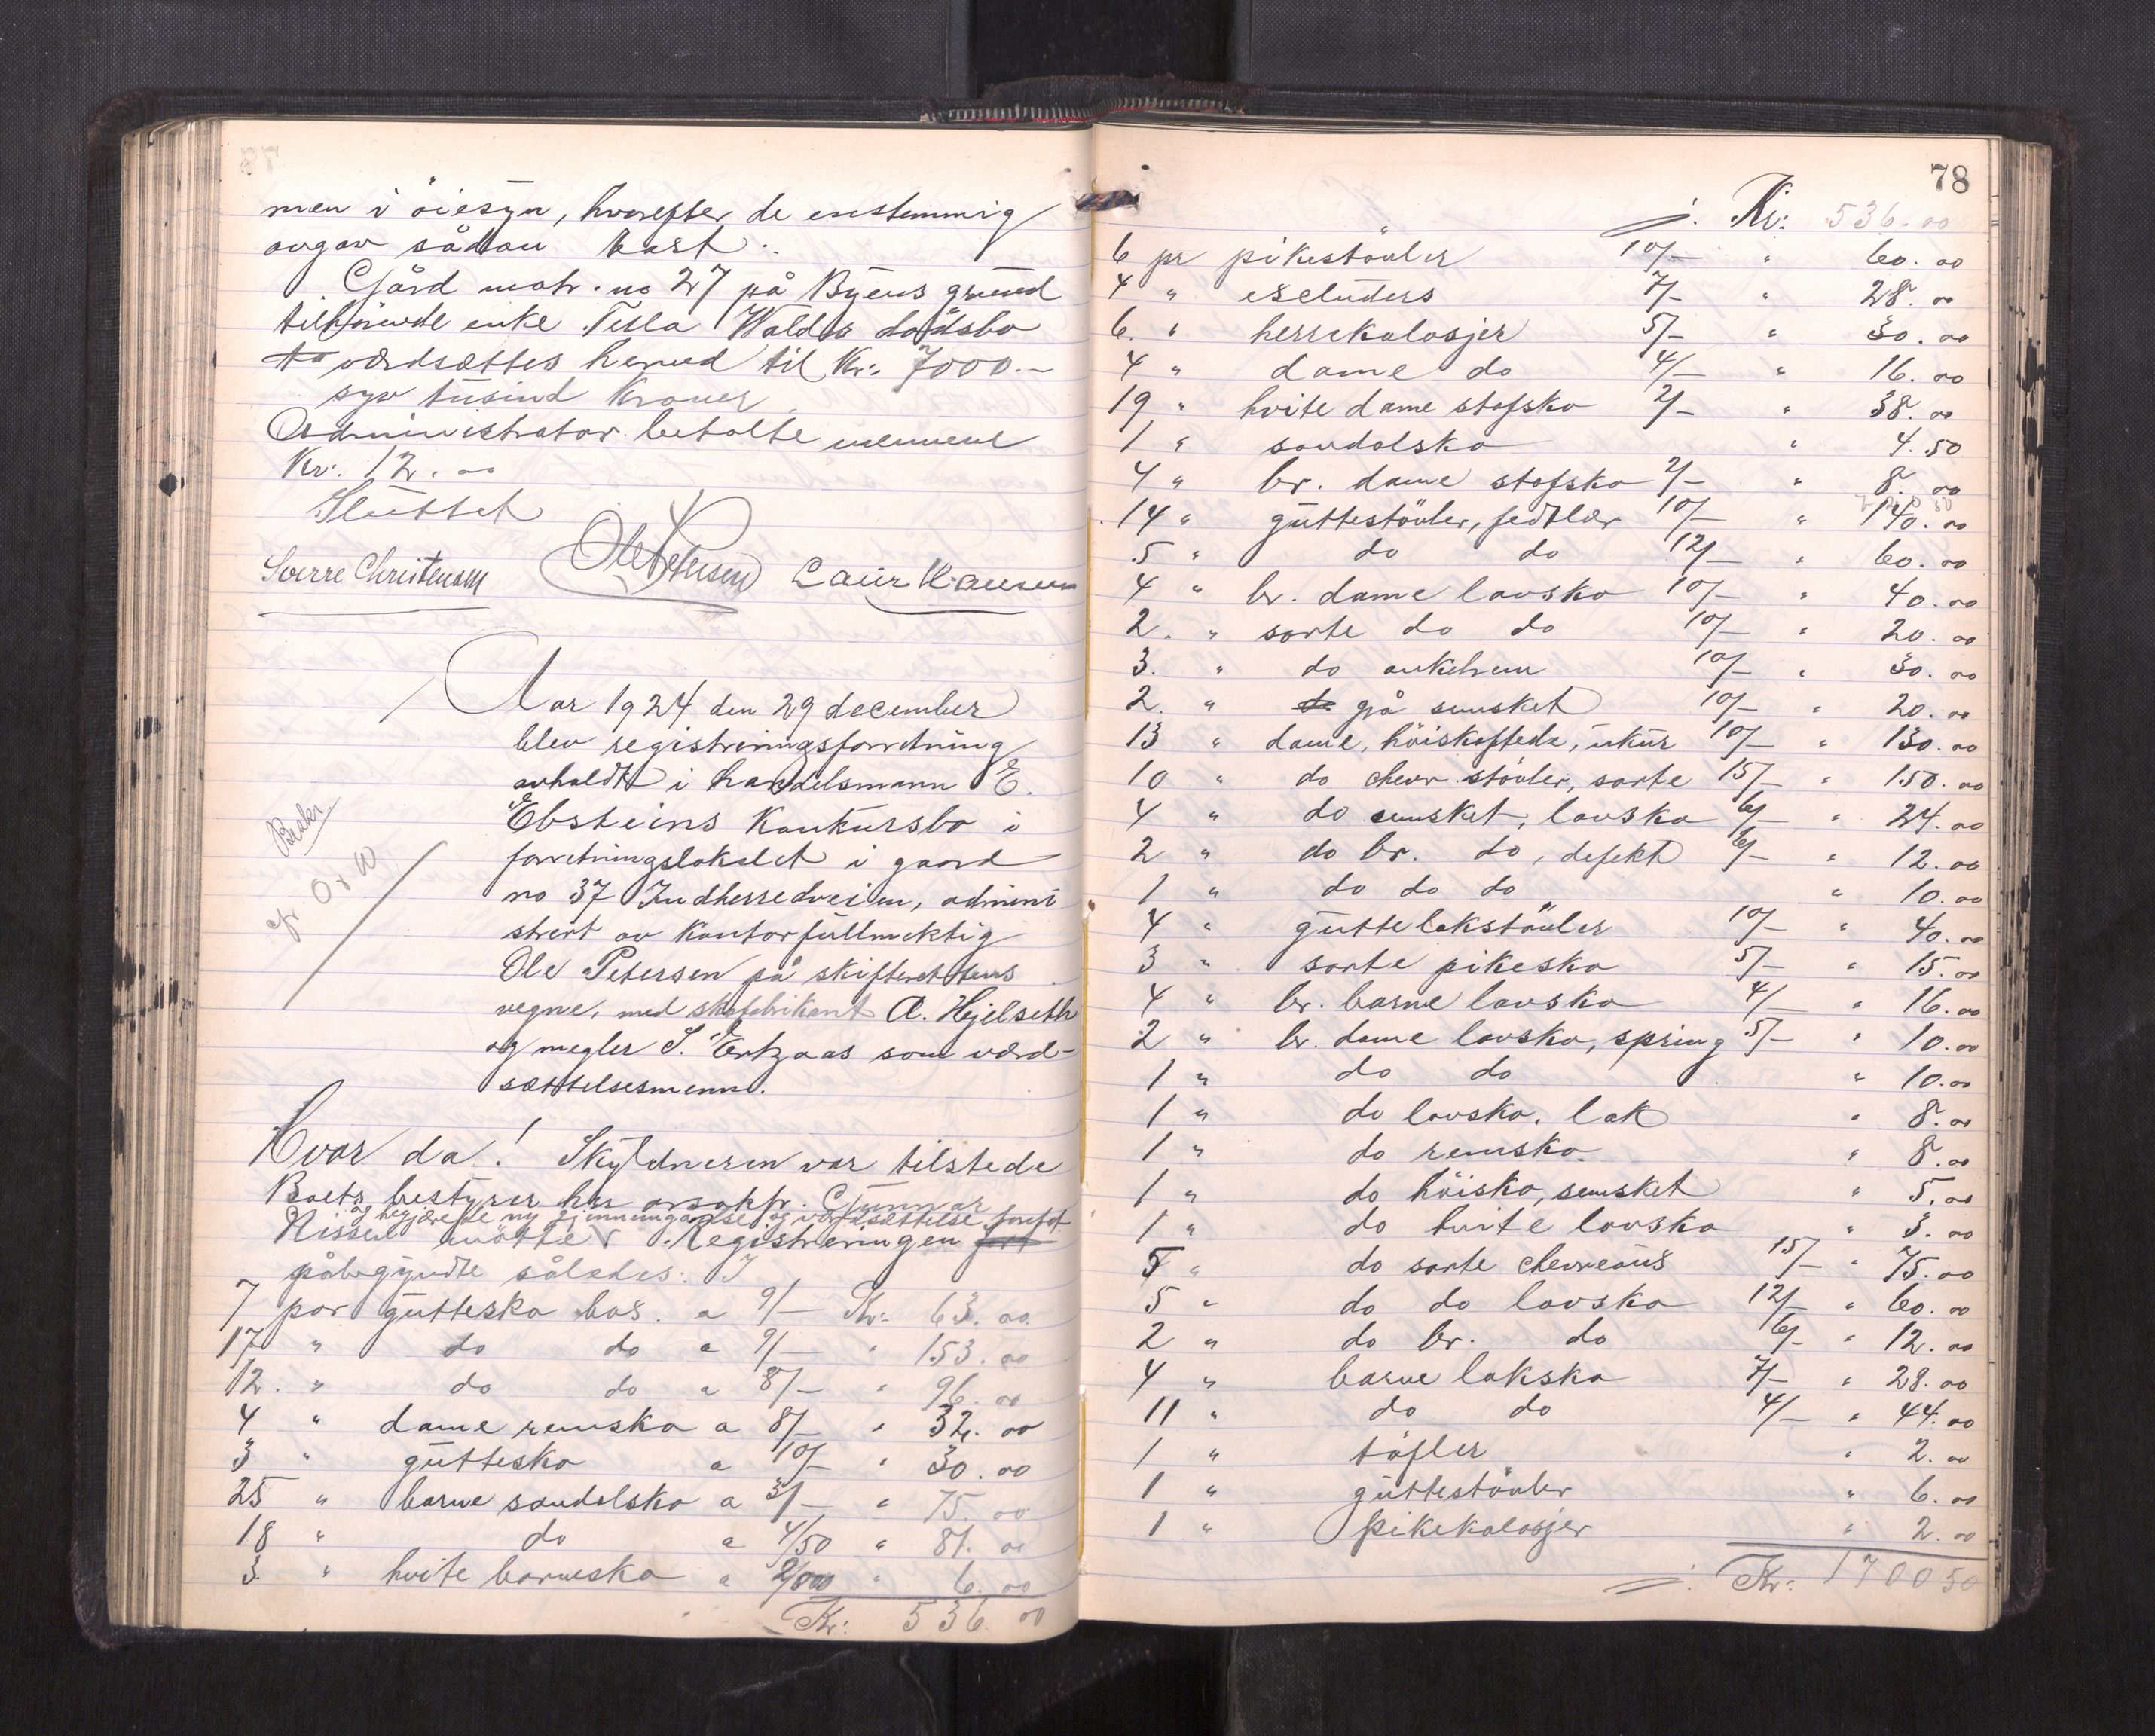 men i öiesyn, hvorefter de enstemmig
avgav sådan takst.
Gård matr. no 27 på Byens grund
tilhörende enke Tella Walds dödsbo
værdsættes herved til Kr: 7000.-
syv tusind Kroner.
Administrator betalte mennene
Kr: 12.00
Sluttet
Sverre Christensen Ole Petersen Laur Hansen
Aar 1924 den 29 december
blev registreringsforretning
avholdt i handelsmann E.
Ebsteins Konkursbo i
forretningslokalet i gaard
no 37 Indherredveien, admini
strert av Kontorfullmektig
Ole Petersen på skifterettens
vegne, med skofabrikant A. Hejelseth
og megler S. Ertzaas som værd-
sættelsesmenn.
Beskr.
Hvor da! Skyldneren var tilstede
Boets bestyrer hr. orsakfr. Gunnar
og begjærede ny gjennemgåelse og værdsættelse foretat
Nissen mötte. Registreringen fort
påbegyndte således: I
7 par guttesko box. a 9/- Kr: 63.00
17 " do do a 9/- " 153.00
12. " do do a 8/- " 96.00
4 " dame remsko a 8/- " 32.00
3 " guttesko a 10/- " 30.00
25 " barne sandalsko a 3/- " 75.00
18 " do a 4/50 " 81.00
3. " hvite barnesko a 2/00 " 6.00
Kr: 536.00
78
Kr: 536.00
6 pr pikestövler 10/- " 60.00
4 " escluders 7/- " 28.00
6. " herrekalosjer 5/- " 30.00
4 " dame do 4/- " 16.00
19 " hvite dame stofsko 2/- " 38.00
1 " sandalsko " 4.50
4 " br. dame stofsko 2/- " 8.00
14 " guttestövler, fedtlær 10/- " 140.00
5 " do do 12/- " 60.00
4 " br. dame lavsko 10/- " 40.00
2. " sorte do do 10/- " 20.00
3. " do ankelrem 10/- " 30.00
2. " do grå semsket 10/- " 20.00
13 " dame, höiskaftede, ukur 10/- " 130.00
10 " do chevr. stövler, sorte 15/- " 150.00
4 " do semsket, lavsko 6/- " 24.00
2 " do br. do, defekt 6/- " 12.00
1 " do do do " 10.00
4 " gutte lakstövler 10/- " 40.00
3 " sorte pikesko 5/- " 15.00
4 " br. barne lavsko 4/- " 16.00
2 " br. dame lavsko, spring 5/- " 10.00
1 " do do " 10.00
1 " do lavsko. lak " 8.00
1 " do remsko. " 8.00
1 " do höisko, semsket " 5.00
1 " do hvite lavsko " 3.00
5 " do sorte chevreaus 15/- " 75.00
5 " do do lavsko 12/- " 60.00
2 " do br. do 6/- " 12.00
4 " barne laksko 7/- " 28.00
11 " do do 4/- " 44.00
1 " töfler " 2.00
1 " guttestövler " 6.00
1 " pikekalosjer " 2.00
Kr: 1700 50